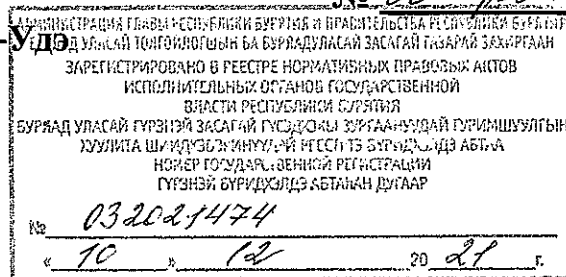 №
АДМИНИСТРАЦИЯ ГЛАВЫ РЕСПУБЛИКИ БУРЯТИЯ И ПРАВИТЕЛЬСТВА РЕСПУБЛИКИ БУРЯТИЯ
-Удэ УЛАСАЙ ТОЛГОЙЛОГШЫН БА БУРЯАД УЛАСАЙ ЗАСАГАЙ ГАЗАРАЙ ЗАХИРГААН
ЗАРЕГИСТРИРОВАНО В РЕЕСТРЕ НОРМАТИВНЫХ ПРАВОВЫХ АКТОВ
ИСПОЛНИТЕЛЬНЫХ ОРГАНОВ ГОСУДАРСТВЕННОЙ
ВЛАСТИ РЕСПУБЛИКИ БУРЯТИЯ
БУРЯАД УЛАСАЙ ГҮРЭНЭЙ ЗАСАГАЙ ГҮЙСЭДХЭХЫ ЗУРГААНУУДАЙ ГУРИМШУУЛГЫН
ХУУЛИТА АБТАА
НОМЕР ГОСУДАРСТВЕННОЙ РЕГИСТРАЦИИ
ГҮРЭНЭЙ БҮРИДХЭЛДЭ АБТАҺАН ДУГААР
№ 032021474
« 10 » 12 20 21 г.